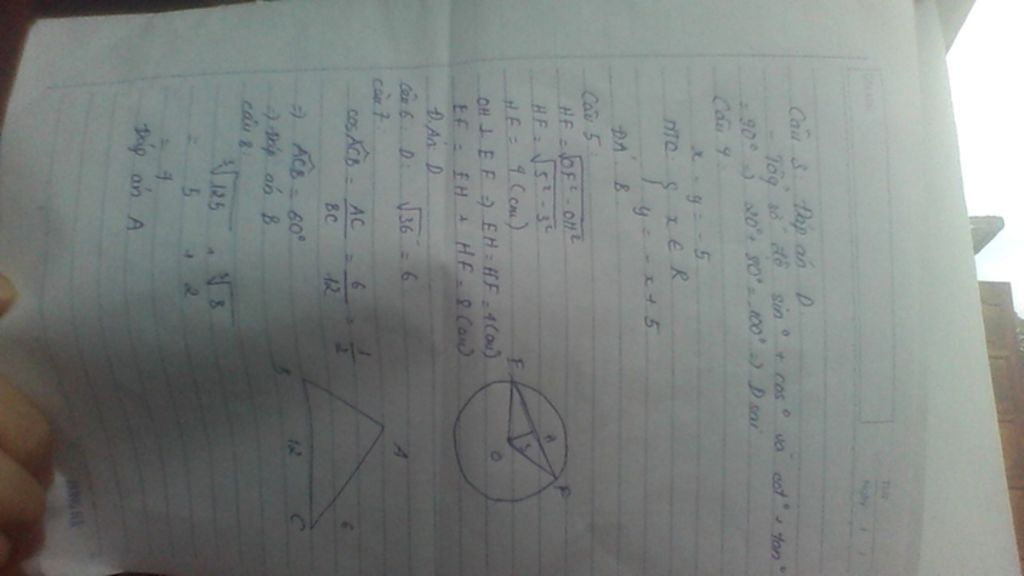 Câu 3. Đáp án D
- Tổng số đo sin° + cos° và cot° + tan°
= 90° ⇒ 20° + 80° = 100° ⇒ D sai
Câu 4.
x = y = -5
{ x ∈ R
y = -x + 5
ĐA B
Câu 5:
HF = √OF² - OH²
HF = √5² - 3²
HF = 4 (cm)
OH ⊥ EF ⇒ EH = HF = 4 (cm)
EF = EH + HF = 8 (cm)
Đ.Án D
E
H
F
O
Câu 6. D. √36 = 6
Câu 7.
cos ACB = AC/BC = 6/12 = 1/2
⇒ ACB = 60°
⇒ Đáp án B
A
B
C
6
12
Câu 8.
∛125 + ∛8
= 5 + 2
= 7
Đáp án A